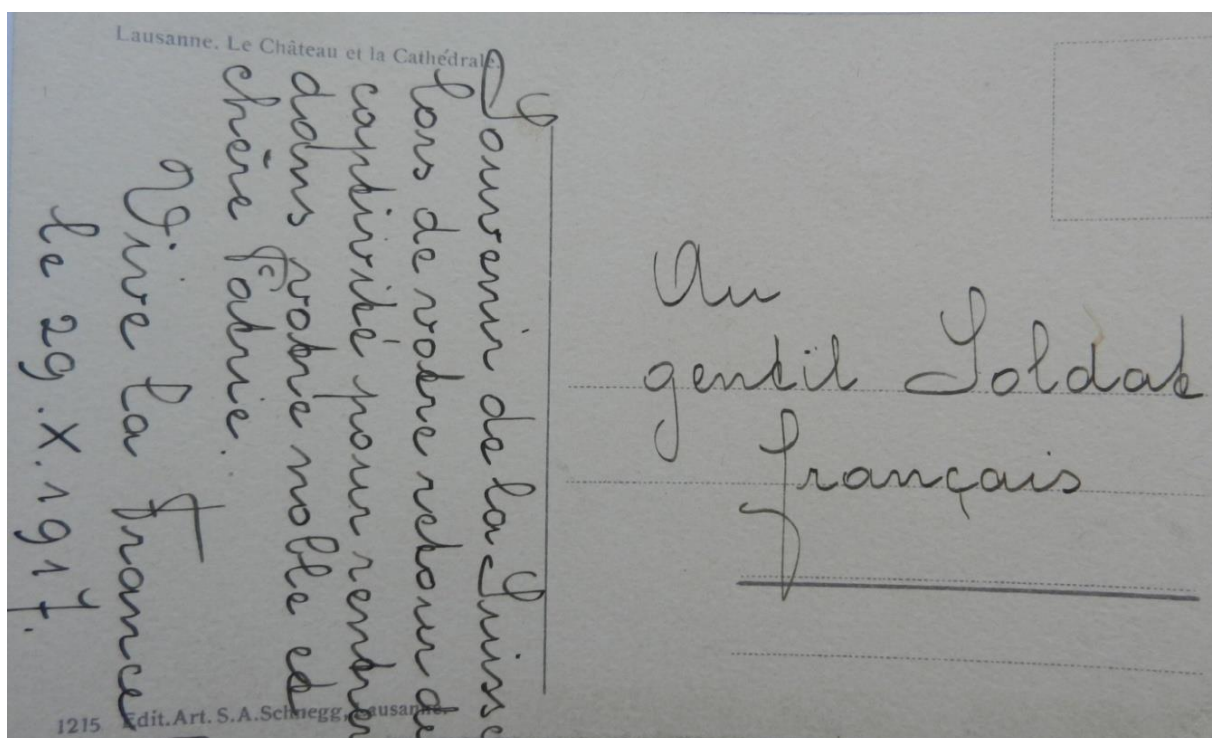 Lausanne. Le Château et la Cathédrale.
Souvenir de la Suisse
lors de votre retour de
captivité pour rentrer
dans votre noble et
chère Patrie.
Vive la France
le 29.X.1917.
Au
gentil Soldat
français
1215 Edit. Art. S.A. Schnegg, Lausanne.